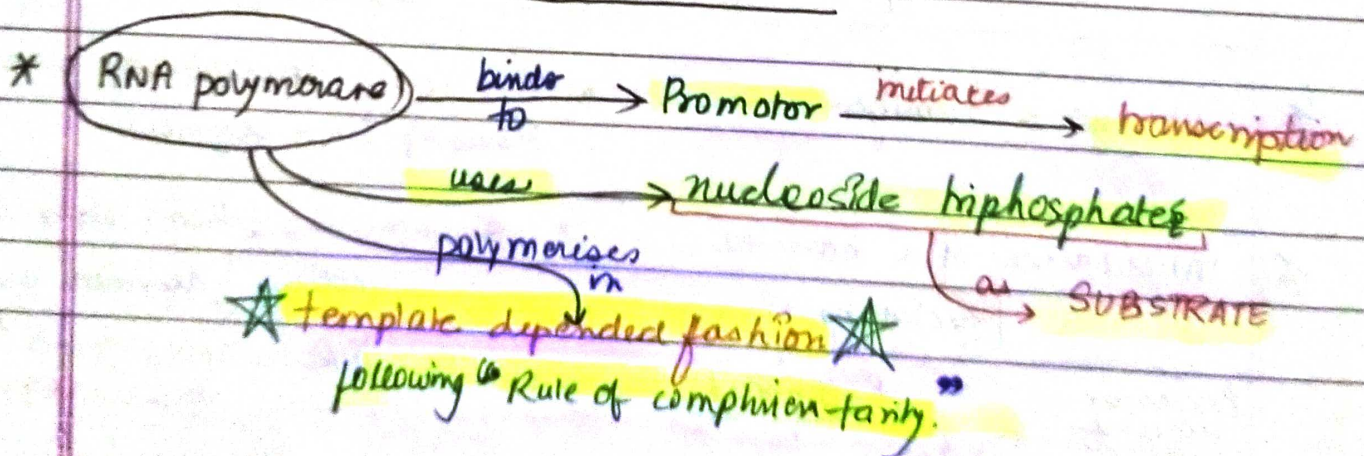 * RNA polymerase binds to → Promotor initiates → transcription
uses → nucleoside triphosphates
polymerises in
as → SUBSTRATE
☆ template depended fashion ☆
following "Rule of complimen-tarity."